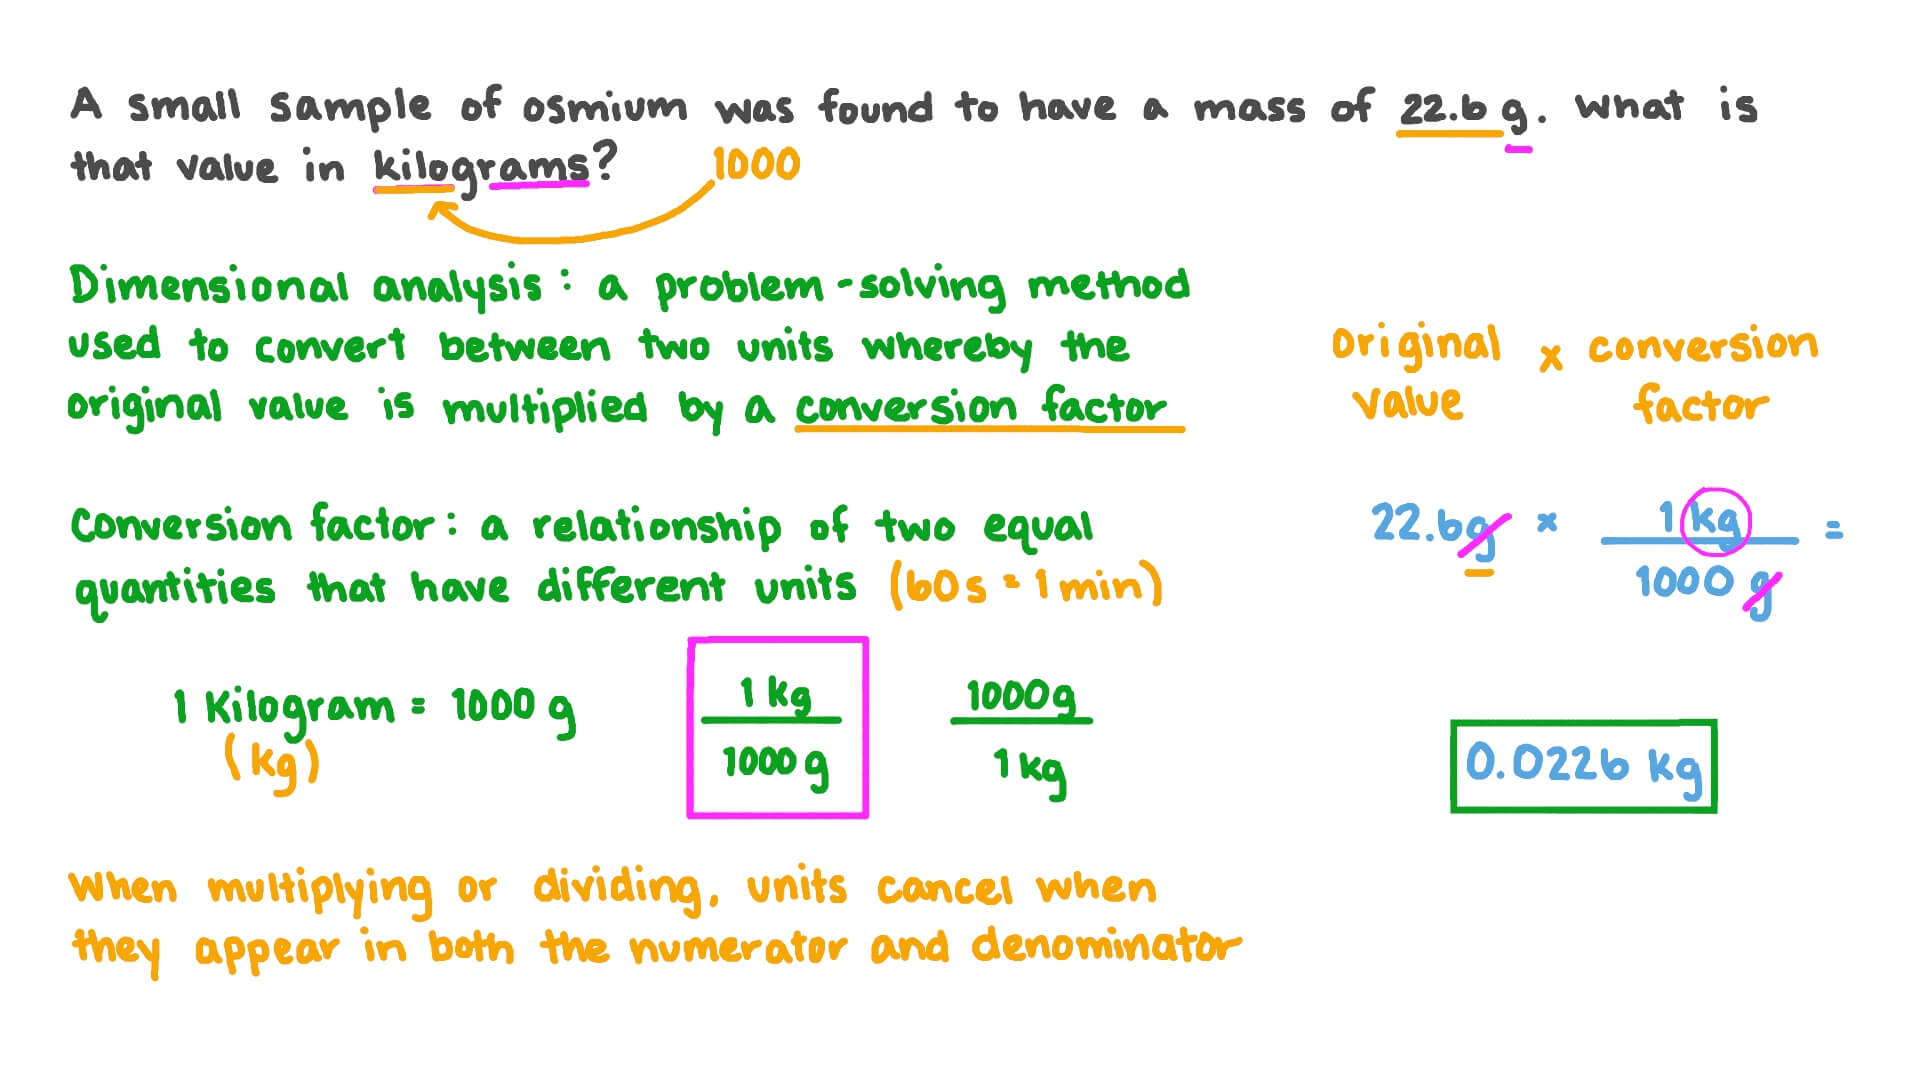 A small sample of osmium was found to have a mass of 22.6 g. What is
that value in kilograms?
1000
Dimensional analysis: a problem-solving method
used to convert between two units whereby the
original value is multiplied by a conversion factor
original x conversion
value factor
Conversion factor: a relationship of two equal
quantities that have different units (60s = 1 min)
22.6g x 1 kg =
1000 g
1 Kilogram = 1000 g
(kg)
1 kg
1000 g
1000g
1 kg
0.0226 kg
When multiplying or dividing, units cancel when
they appear in both the numerator and denominator